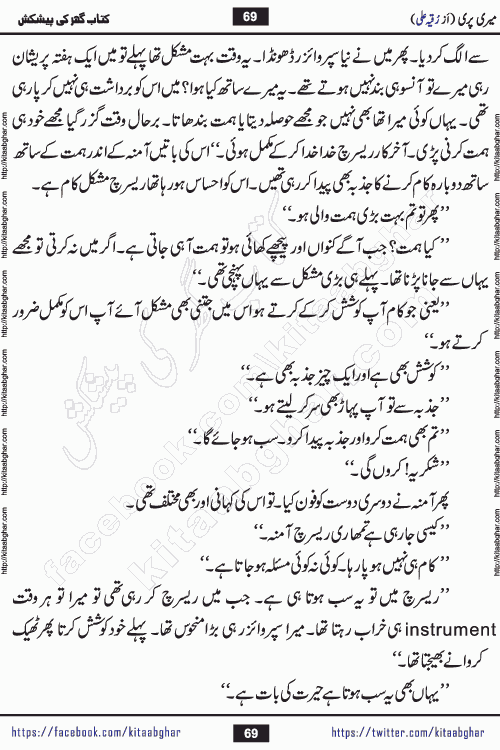 میری پری (از رُقیہ علی) 69 کتاب گھر کی پیشکش
سے الگ کر دیا۔ پھر میں نے نیا سپروائزر ڈھونڈا۔ یہ وقت بہت مشکل تھا پہلے تو میں ایک ہفتہ پریشان
رہی میرے تو آنسو ہی بند نہیں ہوتے تھے۔ یہ میرے ساتھ کیا ہوا؟ میں اس کو برداشت ہی نہیں کر پا رہی
تھی۔ یہاں کوئی میرا تھا بھی نہیں جو مجھے حوصلہ دیتا یا ہمت بندھاتا۔ برحال وقت گزر گیا مجھے خود ہی
ہمت کرنی پڑی۔ آخر کار ریسرچ خدا خدا کر کے مکمل ہوئی۔‘‘ اس کی باتیں آمنہ کے اندر ہمت کے ساتھ
ساتھ دوبارہ کام کرنے کا جذبہ بھی پیدا کر رہی تھیں۔ اس کو احساس ہو رہا تھا ریسرچ مشکل کام ہے۔
’’پھر تو تم بہت بڑی ہمت والی ہو۔‘‘
’’کیا ہمت؟ جب آگے کنواں اور پیچھے کھائی ہو تو ہمت آ ہی جاتی ہے۔ اگر میں نہ کرتی تو مجھے
یہاں سے جانا پڑنا تھا۔ پہلے ہی بڑی مشکل سے یہاں پہنچی تھی۔‘‘
’’یعنی جو کام آپ کو شش کر کے کرتے ہو اس میں جتنی بھی مشکل آئے آپ اس کو مکمل ضرور
کرتے ہو۔‘‘
’’کوشش بھی ہے اور ایک چیز جذبہ بھی ہے۔‘‘
’’جذبہ سے تو آپ پہاڑ بھی سر کر لیتے ہو۔‘‘
’’تم بھی ہمت کرو اور جذبہ پیدا کرو۔ سب ہو جائے گا۔‘‘
’’شکریہ! کروں گی۔‘‘
پھر آمنہ نے دوسری دوست کو فون کیا۔ تو اس کی کہانی اور بھی مختلف تھی۔
’’کیسی جا رہی ہے تمھاری ریسرچ آمنہ۔‘‘
’’کام ہی نہیں ہو پا رہا۔ کوئی نہ کوئی مسئلہ ہو جاتا ہے۔‘‘
’’ریسرچ میں تو یہ سب ہوتا ہی ہے۔ جب میں ریسرچ کر رہی تھی تو میرا تو ہر وقت
instrument ہی خراب رہتا تھا۔ میرا سپروائزر ہی بڑا منحوس تھا۔ پہلے خود کوشش کرتا پھر ٹھیک
کروانے بھیجتا تھا۔‘‘
’’یہاں بھی یہ سب ہوتا ہے حیرت کی بات ہے۔‘‘
https://facebook.com/kitaabghar 69 https://twitter.com/kitaabghar
http://kitaabghar.com
facebook.com/kitaabghar
کتاب گھر کی پیشکش